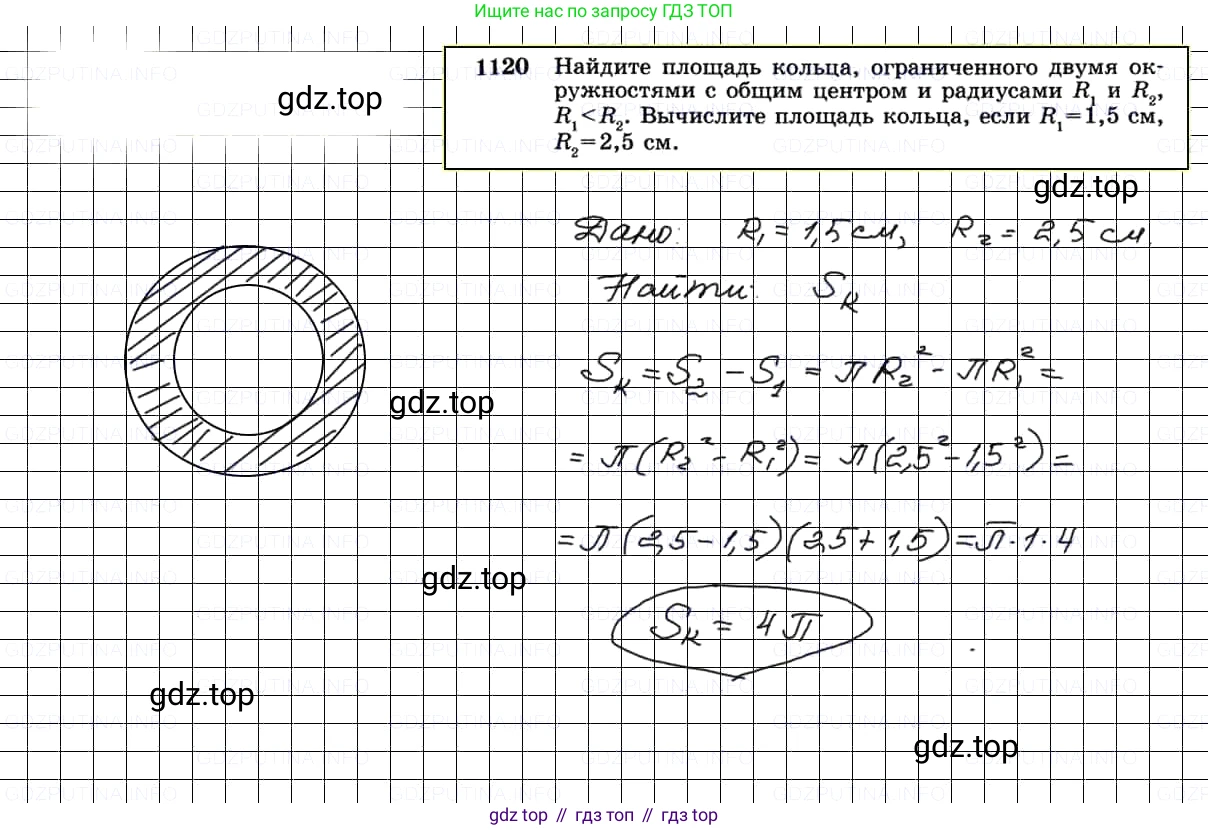 Ищите нас по запросу ГДЗ ТОП
1120 Найдите площадь кольца, ограниченного двумя ок-
ружностями с общим центром и радиусами R₁ и R₂,
R₁<R₂. Вычислите площадь кольца, если R₁=1,5 см,
R₂=2,5 см.
gdz.top
gdz.top
Дано: R₁ = 1,5 см, R₂ = 2,5 см.
Найти: Sк
Sк = S₂ - S₁ = πR₂² - πR₁² =
gdz.top
= π(R₂² - R₁²) = π(2,5² - 1,5²) =
= π(2,5 - 1,5)(2,5 + 1,5) = π·1·4
gdz.top
Sк = 4π
gdz.top
gdz.top
gdz top // гдз топ // гдз top
GDZPUTINA.INFO